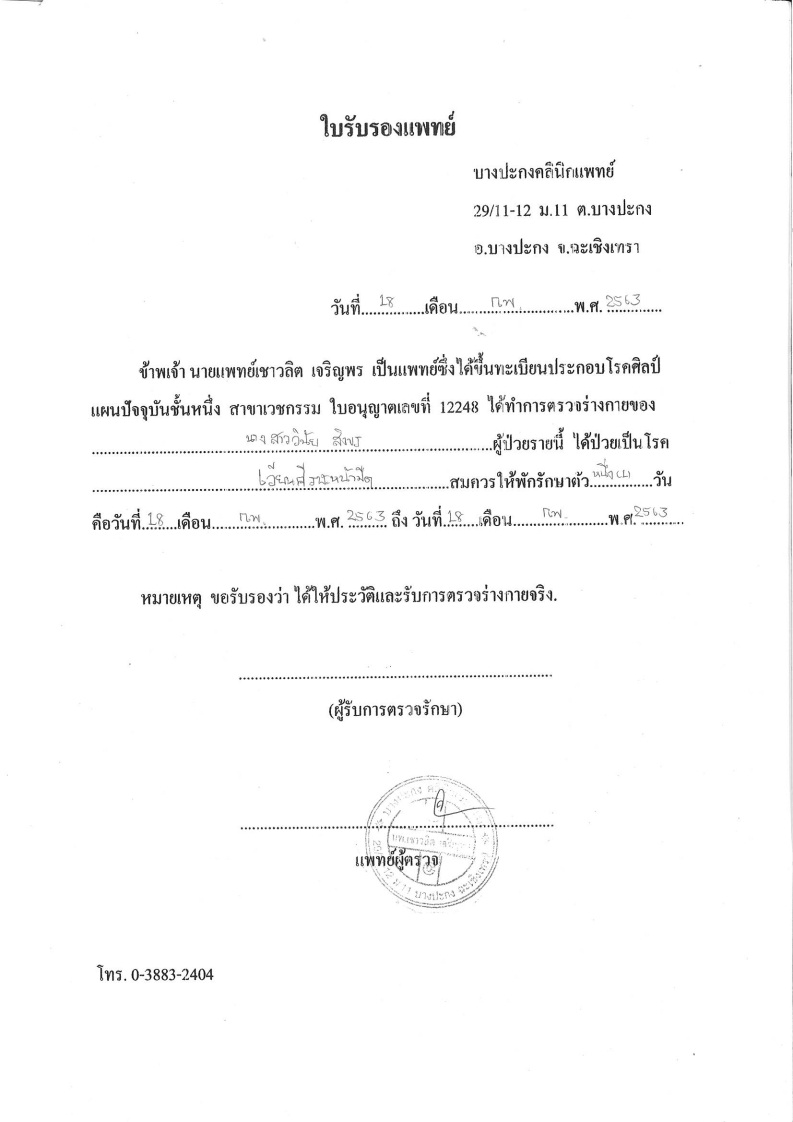 ใบรับรองแพทย์
บางปะกงคลีนิกแพทย์
29/11-12 ม.11 ต.บางปะกง
อ.บางปะกง จ.ฉะเชิงเทรา
วันที่....18....เดือน....กพ....พ.ศ. 2563
ข้าพเจ้า นายแพทย์เชาวลิต เจริญพร เป็นแพทย์ซึ่งได้ขึ้นทะเบียนประกอบโรคศิลป์
แผนปัจจุบันชั้นหนึ่ง สาขาเวชกรรม ใบอนุญาตเลขที่ 12248 ได้ทำการตรวจร่างกายของ
นางสาว....ผู้ป่วยรายนี้ ได้ป่วยเป็นโรค
เวียนศีรษะหน้ามืด....สมควรให้พักรักษาตัว....หนึ่ง(1)....วัน
คือวันที่.18....เดือน....กพ....พ.ศ. 2563 ถึง วันที่.18....เดือน....กพ....พ.ศ. 2563
หมายเหตุ ขอรับรองว่า ได้ให้ประวัติและรับการตรวจร่างกายจริง.
(ผู้รับการตรวจรักษา)
แพทย์ผู้ตรวจ
29/11-12 ม.11 บางปะกง ฉะเชิงเทรา
โทร. 0-3883-2404